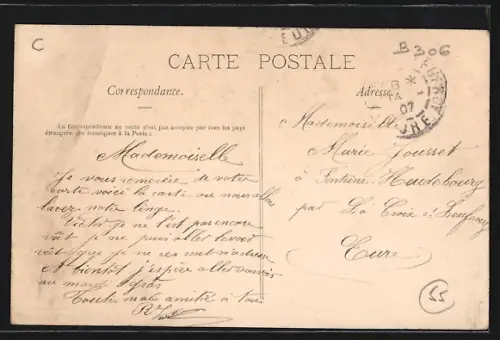 C
B 306
CARTE POSTALE
Correspondance.
La Correspondance au verso n'est pas acceptée par tous les pays
étrangers (Se renseigner à la Poste.)
Mademoiselle
Je vous remercie de votre
carte voici la carte ou nous allons
laver notre linge.
Victor je ne l'est pas encore
vût je ne puis aller
vût que je ne
et bientôt j'espère aller vous voir
au mardi gras
Toute mes amitié à tous
Adresse
07
EURE
Mademoiselle
Marie Jousset
à Fontaine Heudebourg
par La Croix St Leufroy
Eure
55